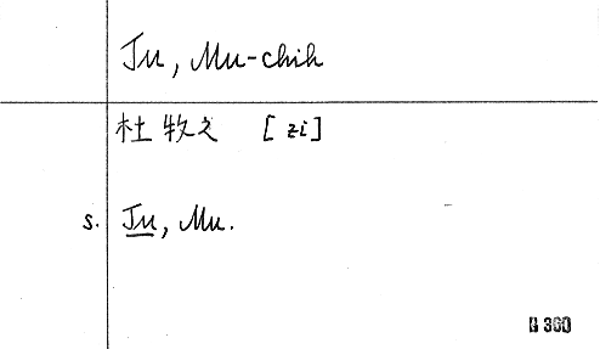 Tu, Mu-chih
杜牧之 [zi]
s. Tu, Mu.
B 360